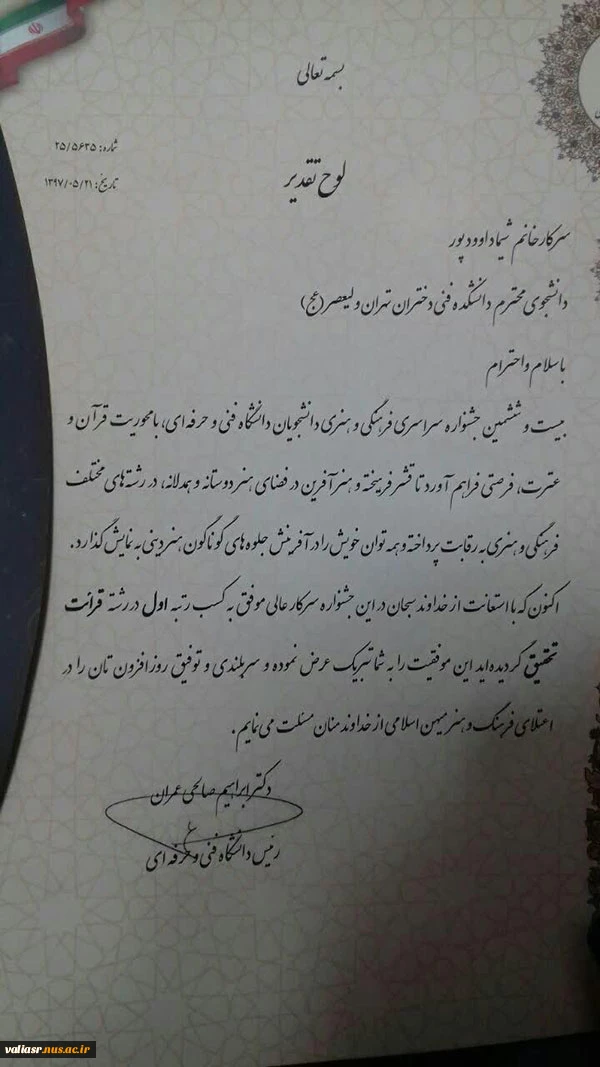 بسمه تعالی
شماره: ۲۵/۵۶۳۵
تاریخ: ۱۳۹۷/۰۵/۲۱
لوح تقدیر
سرکار خانم شیما داوود پور
دانشجوی محترم دانشکده فنی دختران تهران ولیعصر (عج)
با سلام و احترام
بیست و ششمین جشنواره سراسری فرهنگی و هنری دانشجویان دانشگاه فنی و حرفه ای، با محوریت قرآن و
عترت، فرصتی فراهم آورد تا قشر فریخته و هنرآفرین در فضای هنر دوستانه و همدلانه، در رشته های مختلف
فرهنگی و هنری به رقابت پرداخته و همه توان خویش را در آفرینش جلوه های گوناگون هنر دینی به نمایش گذارد.
اکنون که با استعانت از خداوند سبحان در این جشنواره سرکار عالی موفق به کسب رتبه اول در رشته قرائت
تحقیق گردیده اید این موفقیت را به شما تبریک عرض نموده و سربلندی و توفیق روز افزون تان را در
اعتلای فرهنگ و هنر میهن اسلامی از خداوند منان مسئلت می نمایم.
دکتر ابراهیم صالحی عمران
رئیس دانشگاه فنی و حرفه ای
valiasr.nus.ac.ir